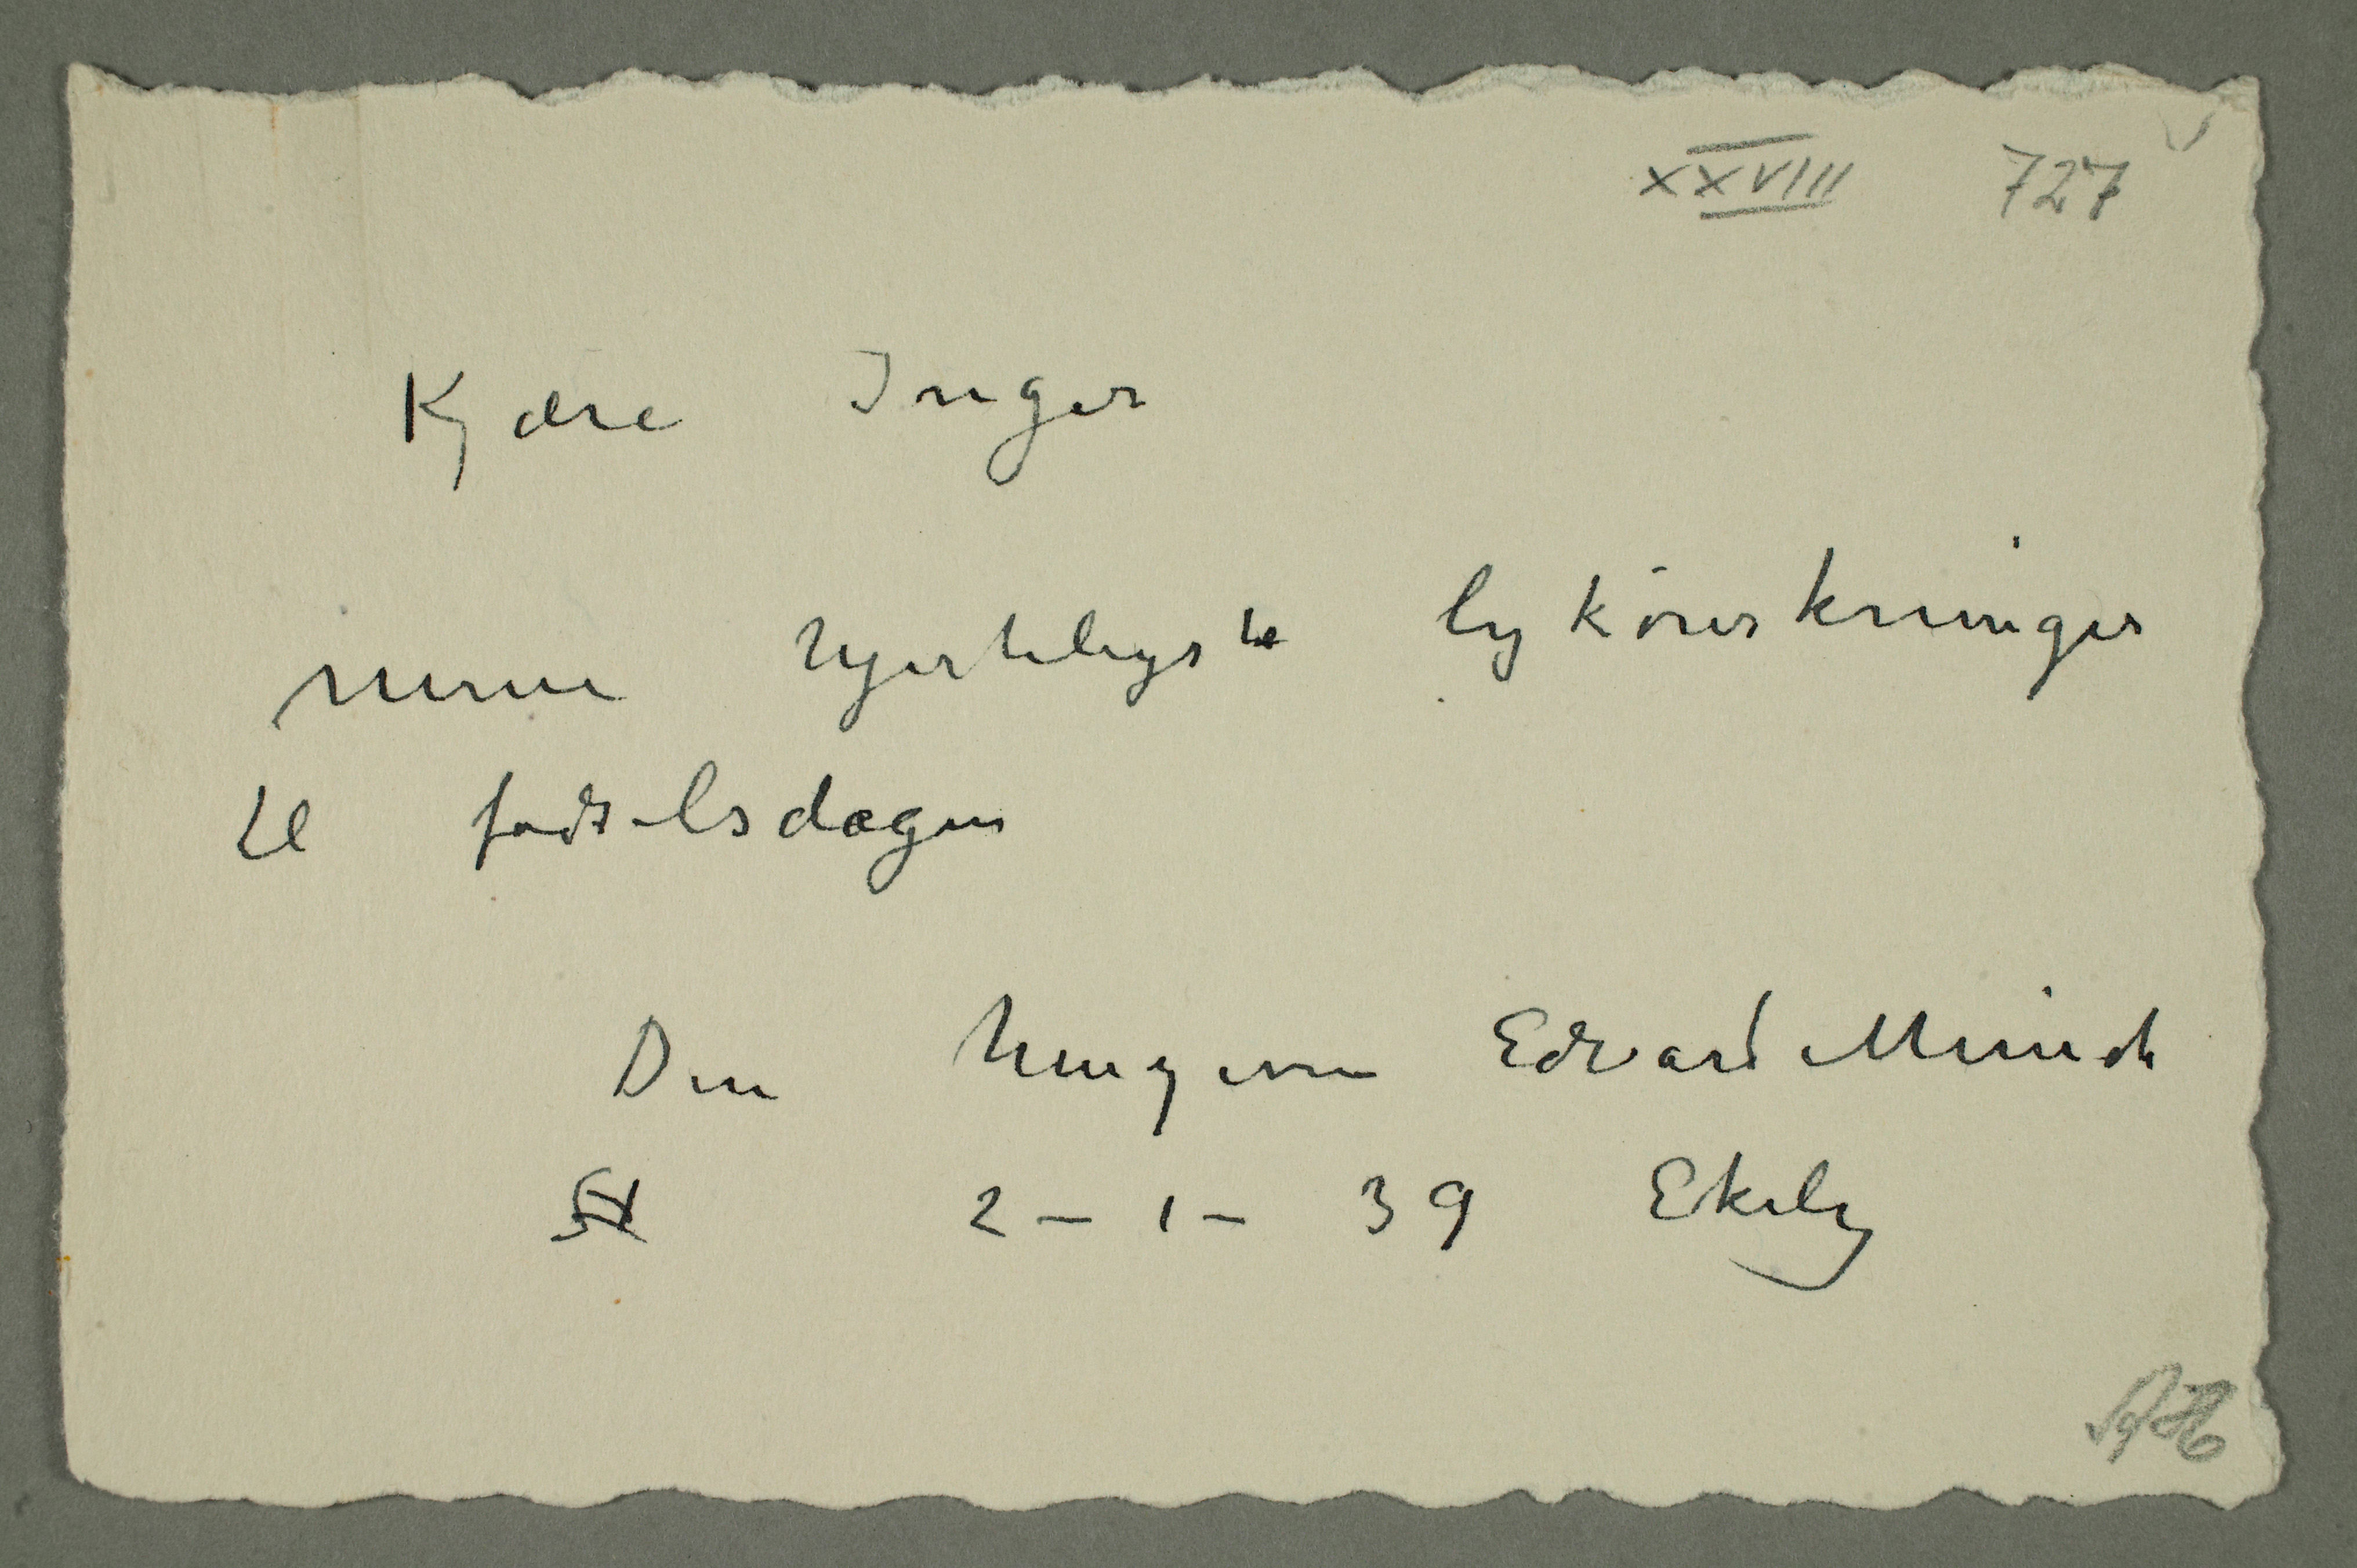 XXVIII 727
Kjære Inger
mine hjerteligste lykönskninger
til fødselsdagen
Din hengivne Edvard Munch
2 – 1 – 39 Ekely